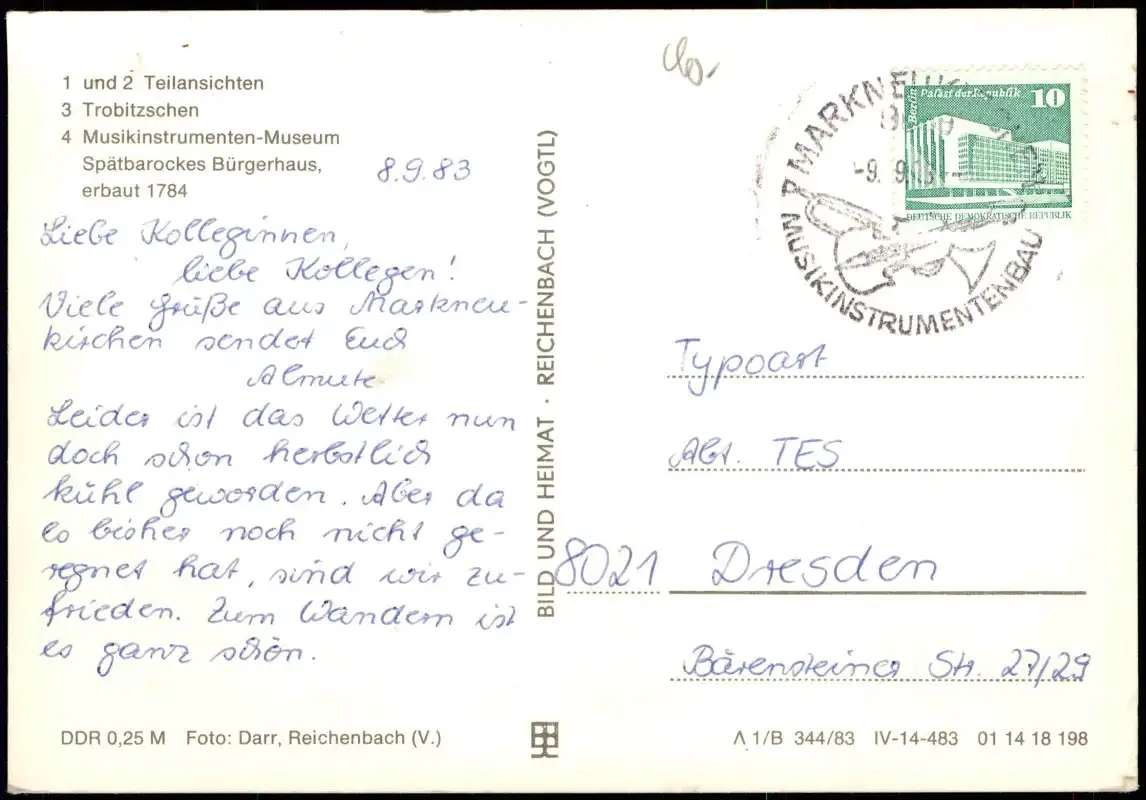 1 und 2 Teilansichten
3 Trobitzschen
4 Musikinstrumenten-Museum
Spätbarockes Bürgerhaus,
erbaut 1784
8.9.83
Liebe Kolleginnen,
liebe Kollegen!
Viele Grüße aus Markneu-
kirchen sendet Euch
Almute
Leider ist das Wetter nun
doch schon herbstlich
kühl geworden. Aber da
es bisher noch nicht ge-
regnet hat, sind wir zu-
frieden. Zum Wandern ist
es ganz schön.
BILD UND HEIMAT · REICHENBACH (VOGTL)
Berlin Palast der Republik 10
DEUTSCHE DEMOKRATISCHE REPUBLIK
MUSIKINSTRUMENTENBAU
Typoart
Abt. TES
8021 Dresden
Bärensteiner Str. 27/29
DDR 0,25 M Foto: Darr, Reichenbach (V.)
A 1/B 344/83 IV-14-483 01 14 18 198